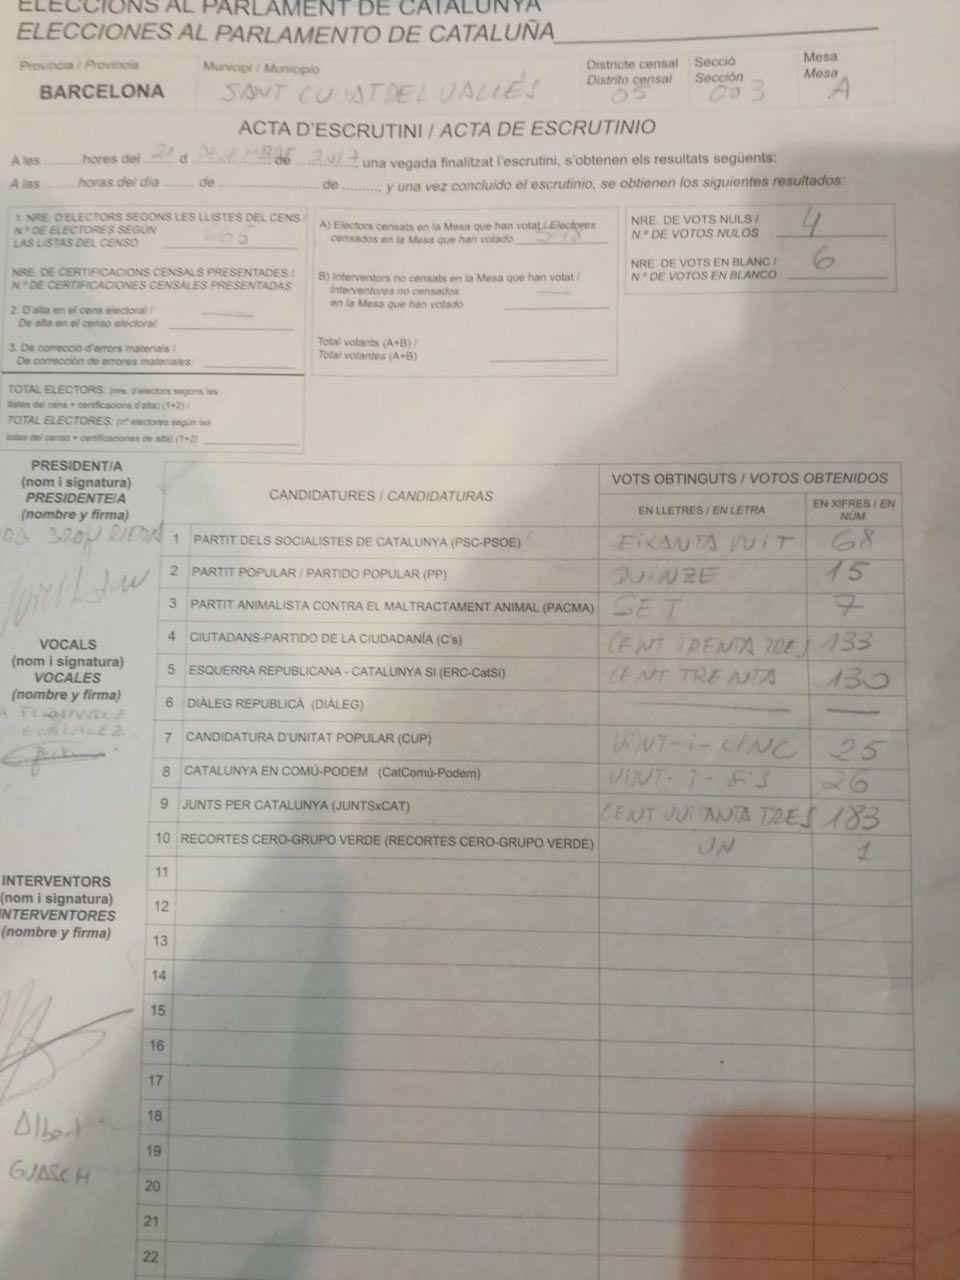 ELECCIONS AL PARLAMENT DE CATALUNYA
ELECCIONES AL PARLAMENTO DE CATALUÑA
Província / Provincia
BARCELONA
Municipi / Municipio
SANT CUGAT DEL VALLÉS
Districte censal
Distrito censal
05
Secció
Sección
003
Mesa
Mesa
A
ACTA D'ESCRUTINI / ACTA DE ESCRUTINIO
A les .......... hores del 21 d DESEMBRE de 2017, una vegada finalitzat l'escrutini, s'obtenen els resultats següents:
A las .......... horas del día ........ de ......................... de .........., y una vez concluido el escrutinio, se obtienen los siguientes resultados:
1. NRE. D'ELECTORS SEGONS LES LLISTES DEL CENS /
N.º DE ELECTORES SEGÚN
LAS LISTAS DEL CENSO 665
NRE. DE CERTIFICACIONS CENSALS PRESENTADES /
N.º DE CERTIFICACIONES CENSALES PRESENTADAS
2. D'alta en el cens electoral /
De alta en el censo electoral:
3. De correcció d'errors materials /
De corrección de errores materiales:
TOTAL ELECTORS: (nre. d'electors segons les
llistes del cens + certificacions d'alta) (1+2) /
TOTAL ELECTORES: (nº electores según las
listas del censo + certificaciones de alta) (1+2)
A) Electors censats en la Mesa que han votat / Electores
censados en la Mesa que han votado
B) Interventors no censats en la Mesa que han votat /
Interventores no censados
en la Mesa que han votado
Total votants (A+B) /
Total votantes (A+B)
NRE. DE VOTS NULS /
N.º DE VOTOS NULOS 4
NRE. DE VOTS EN BLANC /
N.º DE VOTOS EN BLANCO 6
PRESIDENT/A
(nom i signatura)
PRESIDENTE/A
(nombre y firma)
VOCALS
(nom i signatura)
VOCALES
(nombre y firma)
FERNANDEZ
GONZALEZ
INTERVENTORS
(nom i signatura)
INTERVENTORES
(nombre y firma)
Albert
GUASCH
CANDIDATURES / CANDIDATURAS
VOTS OBTINGUTS / VOTOS OBTENIDOS
EN LLETRES / EN LETRA
EN XIFRES / EN NÚM.
1 PARTIT DELS SOCIALISTES DE CATALUNYA (PSC-PSOE) EIXANTA VUIT 68
2 PARTIT POPULAR / PARTIDO POPULAR (PP) QUINZE 15
3 PARTIT ANIMALISTA CONTRA EL MALTRACTAMENT ANIMAL (PACMA) SET 7
4 CIUTADANS-PARTIDO DE LA CIUDADANÍA (C's) CENT TRENTA TRES 133
5 ESQUERRA REPUBLICANA - CATALUNYA SI (ERC-CatSí) CENT TRENTA 130
6 DIÀLEG REPUBLICÀ (DIÀLEG)
7 CANDIDATURA D'UNITAT POPULAR (CUP) VINT-i-CINC 25
8 CATALUNYA EN COMÚ-PODEM (CatComú-Podem) VINT-i-SIS 26
9 JUNTS PER CATALUNYA (JUNTSxCAT) CENT VUITANTA TRES 183
10 RECORTES CERO-GRUPO VERDE (RECORTES CERO-GRUPO VERDE) UN 1
11
12
13
14
15
16
17
18
19
20
21
22